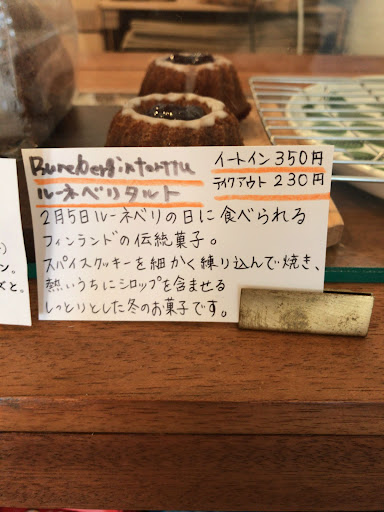 Runebergintorttu
イートイン 350円
ルーネベリタルト
テイクアウト 230円
2月5日ルーネベリの日に食べられる
フィンランドの伝統菓子。
スパイスクッキーを細かく練り込んで焼き、
熱いうちにシロップを含ませる
しっとりとした冬のお菓子です。
ン。
ズと。